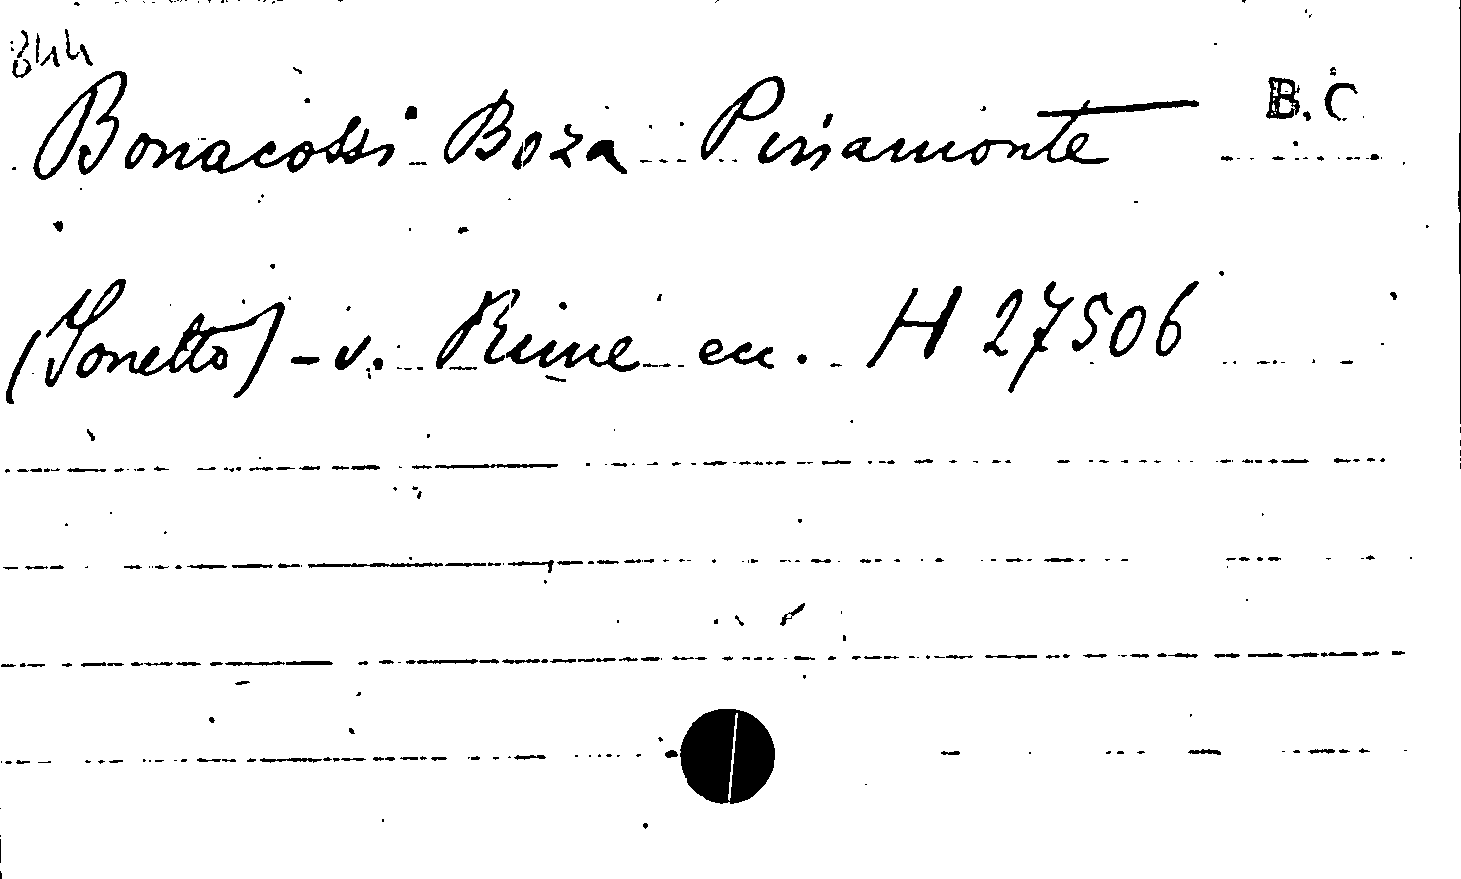 844
Bonacossi Boza Pirriamonte B.C
(Sonetto) - v. Rime ecc. H 27506